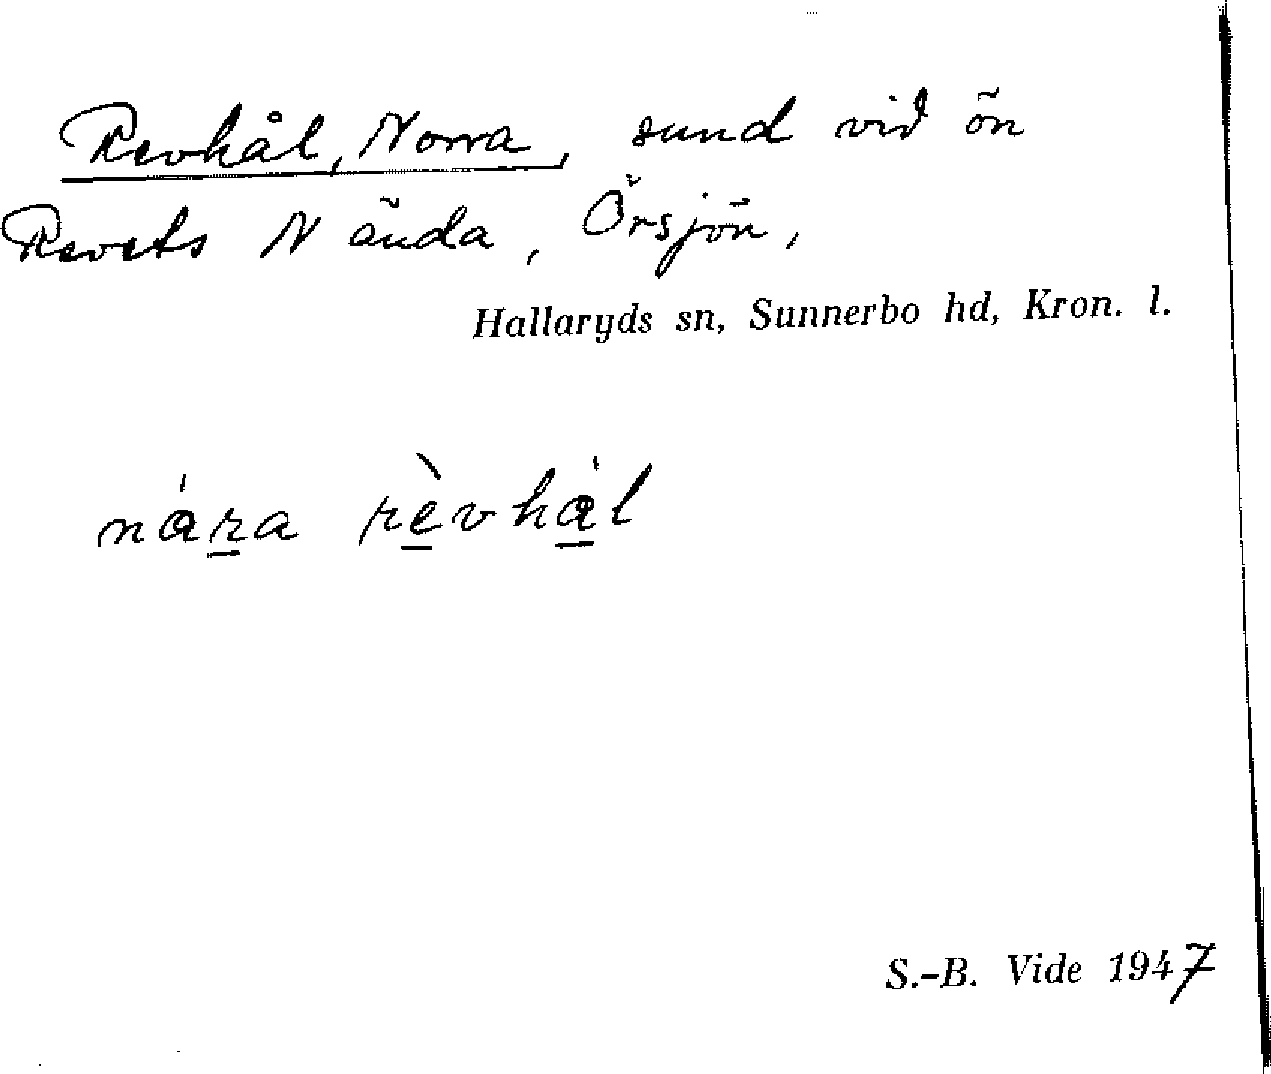 Revhål, Norra, sund vid ön
Revets Nända, Örsjön,
Hallaryds sn, Sunnerbo hd, Kron. l.
nára rèvhál
S.-B. Vide 1947